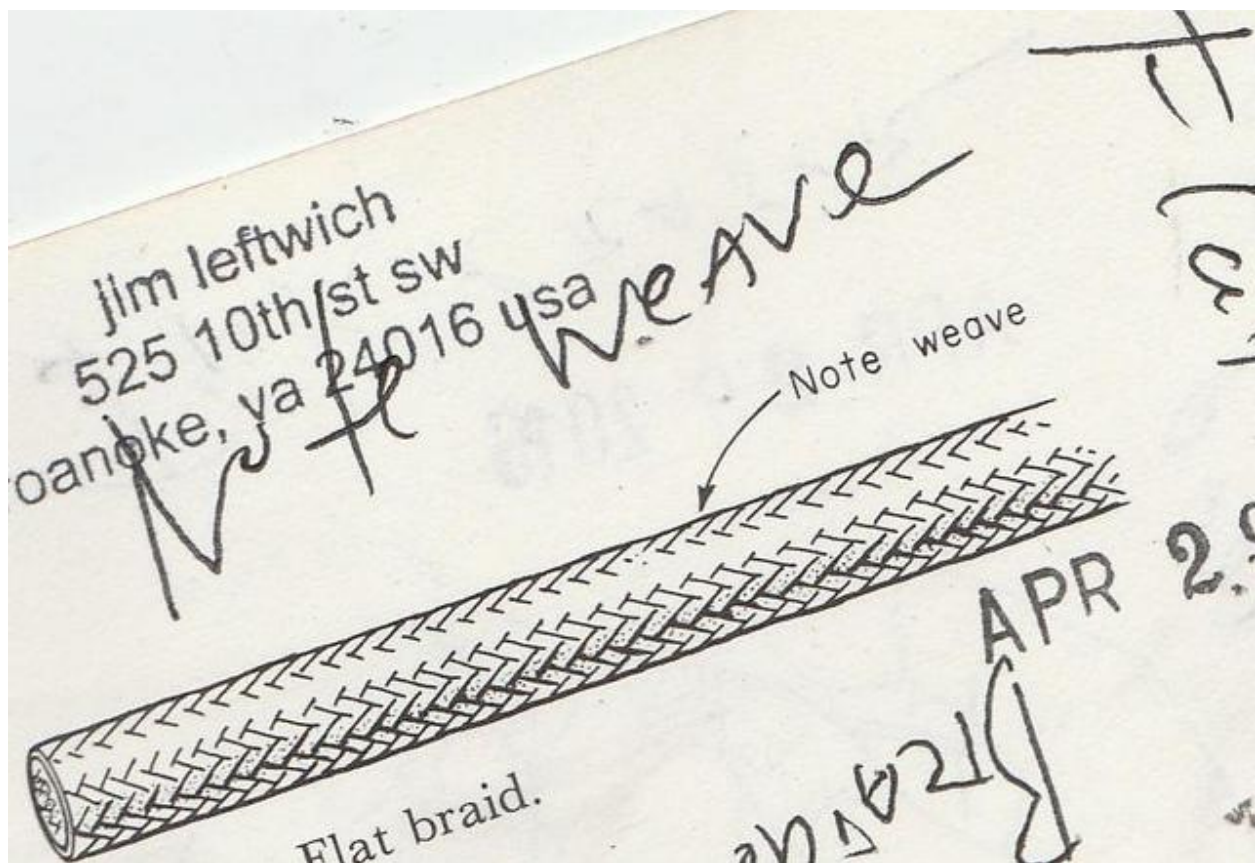 jim leftwich
525 10th st sw
roanoke, va 24016 usa
Note weAve
Note weave
APR
Flat braid.